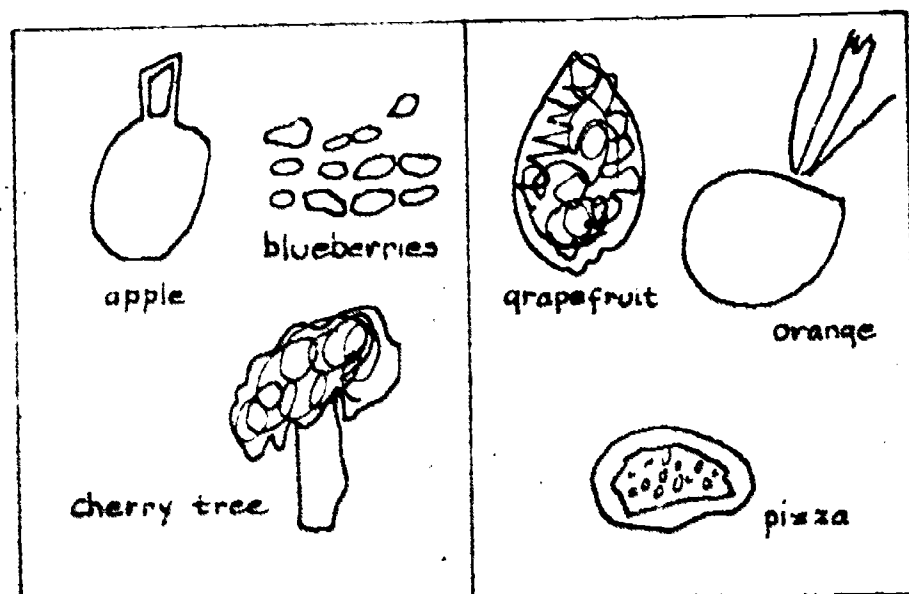 apple
blueberries
cherry tree
grapefruit
orange
pizza